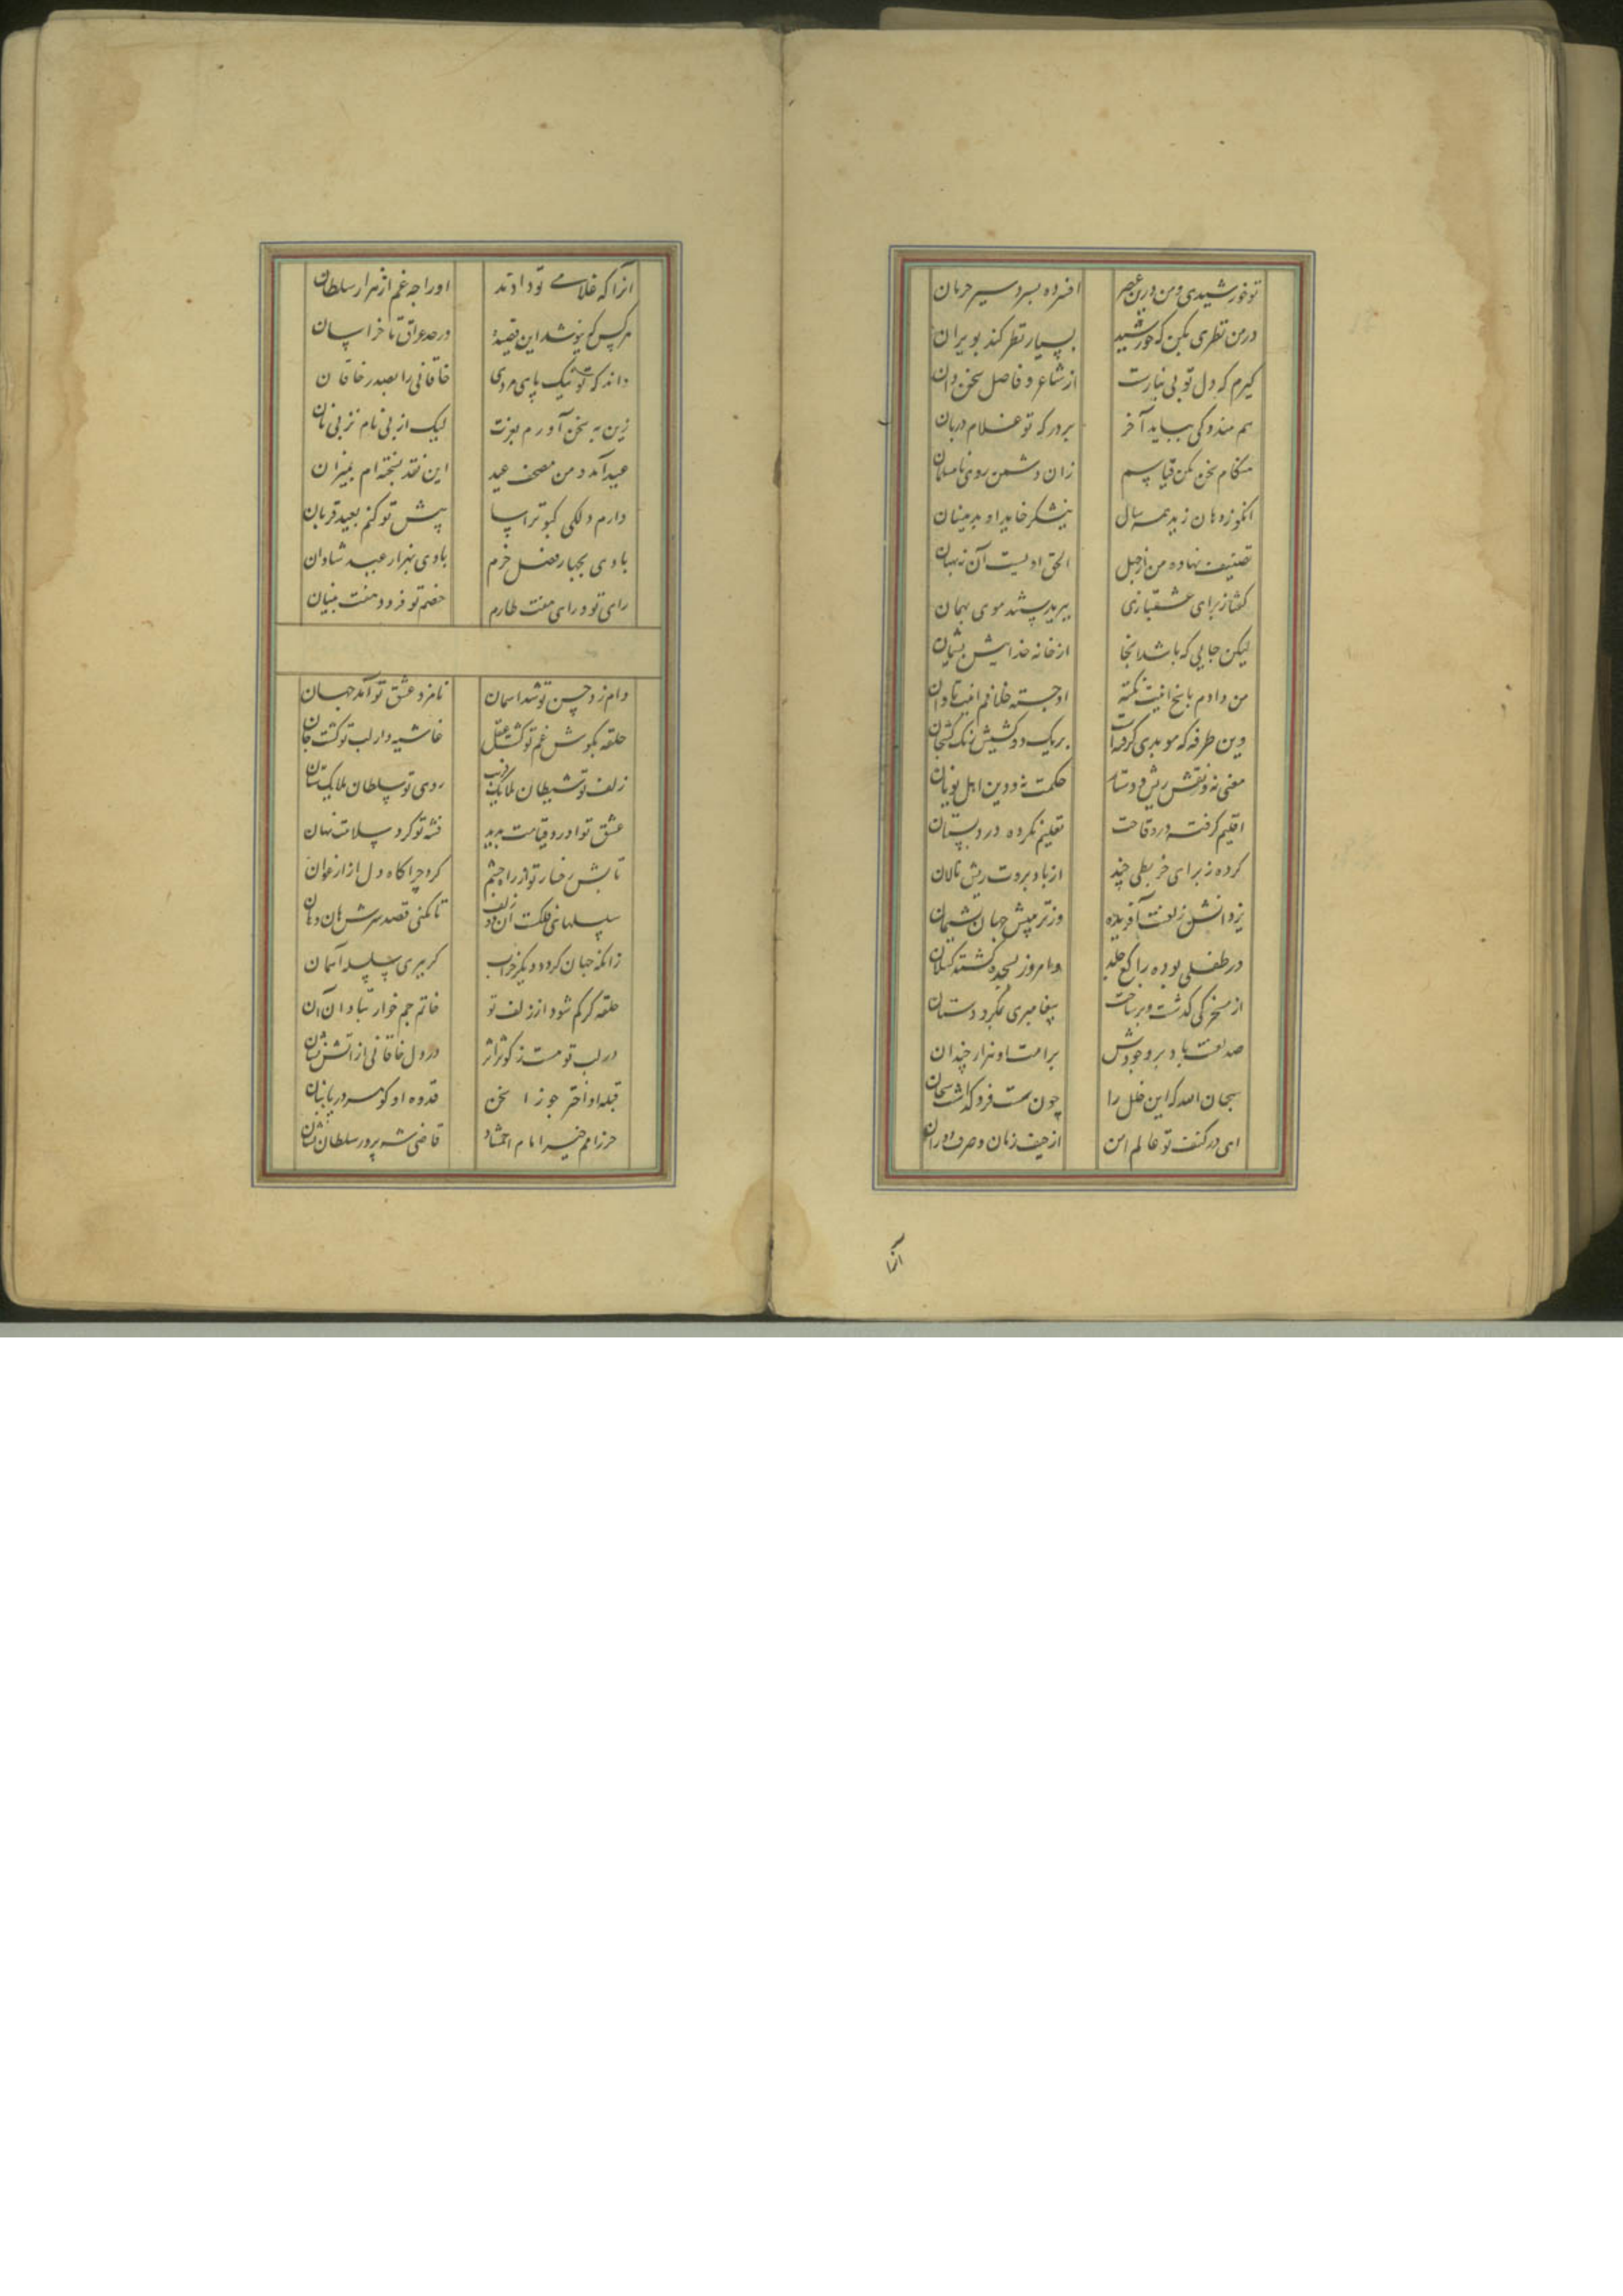 تو خورشیدی و من درین عصر افسرده بسردسیر حرمان
در من نظری بکن که خورشید بسیار نظر کند بویران
کیرم که دل تو بی نیازست از شاعر و فاضل سخن دان
هم هندوکی بباید آخر بر درکه تو غلام دربان
هنکام سخن مکن قیاسم زان دشمن روی نامسلمان
انکوزه هان زید همه سال نیشکر خاید او بدمینان
تصنیف نهاده من از جهل الحق اولیست آن به بهتان
کفتا ز برای عشقبازی ببرید پشند موی بهمان
لیکن جایی که باشد انجا از خانه خدایش پشیمان
من دادم پاسخ اینت نکته او جسته خلاف اینت تاوان
وین طرفه که موبدی کرفتست بر یک دو کشیش زنک کشخان
معنی نه و نقش ریش و دستار حکمت نه و دین اهل یونان
اقلیم کرفته در وقاحت تعلیم نکرده در دبستان
کرده ز برای خربطی چند از باد بروت ریش پالان
یزدانش ز لعنت آفریده وز تربیتش جهان پشیمان
در طفلی بوده راکع جلد وامروز بسجده کشته کسلان
از مسخرکی کذشت و برساخت پیغامبری بمکر و دستان
صد لعنت باد بر وجودش بر امت او هزار چندان
سبحان الله که این خلل را چون سمت فرو کذاشت سبحان
ای در کنف تو عالم امن از حیف زمان و صرف دوران
آنرا
آنرا که غلامی تو دادند اورا چه غم از هزار سلطان
هرکس که نیوشد این قصیده در حد عراق تا خراسان
داند که تو نیک پای مردی خاقانی را بصدر خاقان
زین به سخن آورم بعزت لیک از پی نام نز پی نان
عید آمد و من مصحف عید این نقد بسخته ام بمیزان
دارم دلکی کبوتر آسا پیش تو کنم بعید قربان
بادی بچهار فصل خرم بادی بهزار عید شادان
رای تو ورای هفت طارم خصم تو فرود هفت بنیان
دام زد حسن تو شد آسمان نامزد عشق تو آمد جهان
حلقه بکوش غم تو کشت عقل غاشیه دار لب تو کشت جان
زلف تو شیطان ملایک فریب روی تو سلطان ملایک ستان
عشق تو آورد قیامت پدید فتنه تو کرد سلامت نهان
تابش رخسار تو از راه چشم کرد چراکاه دل از ارغوان
سلسلهای فلکست آن دو زلف تا نکنی قصد سرش هان و هان
زانکه جهان کردد دیکر خراب کر ببری سلسله آسمان
حلقه کر کم شود از زلف تو خاتم جم خوار تاوان آن
در لب تو هست ز کوثر اثر در دل خاقانی از آتش نشان
قبله او اختر جوزا سخن قدوه او کوهر دریا بنان
حرز امم خیر امام احتشاد قاضی شه پرور سلطان نشان